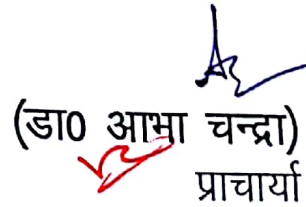 (डा0 आभा चन्द्रा)
प्राचार्या